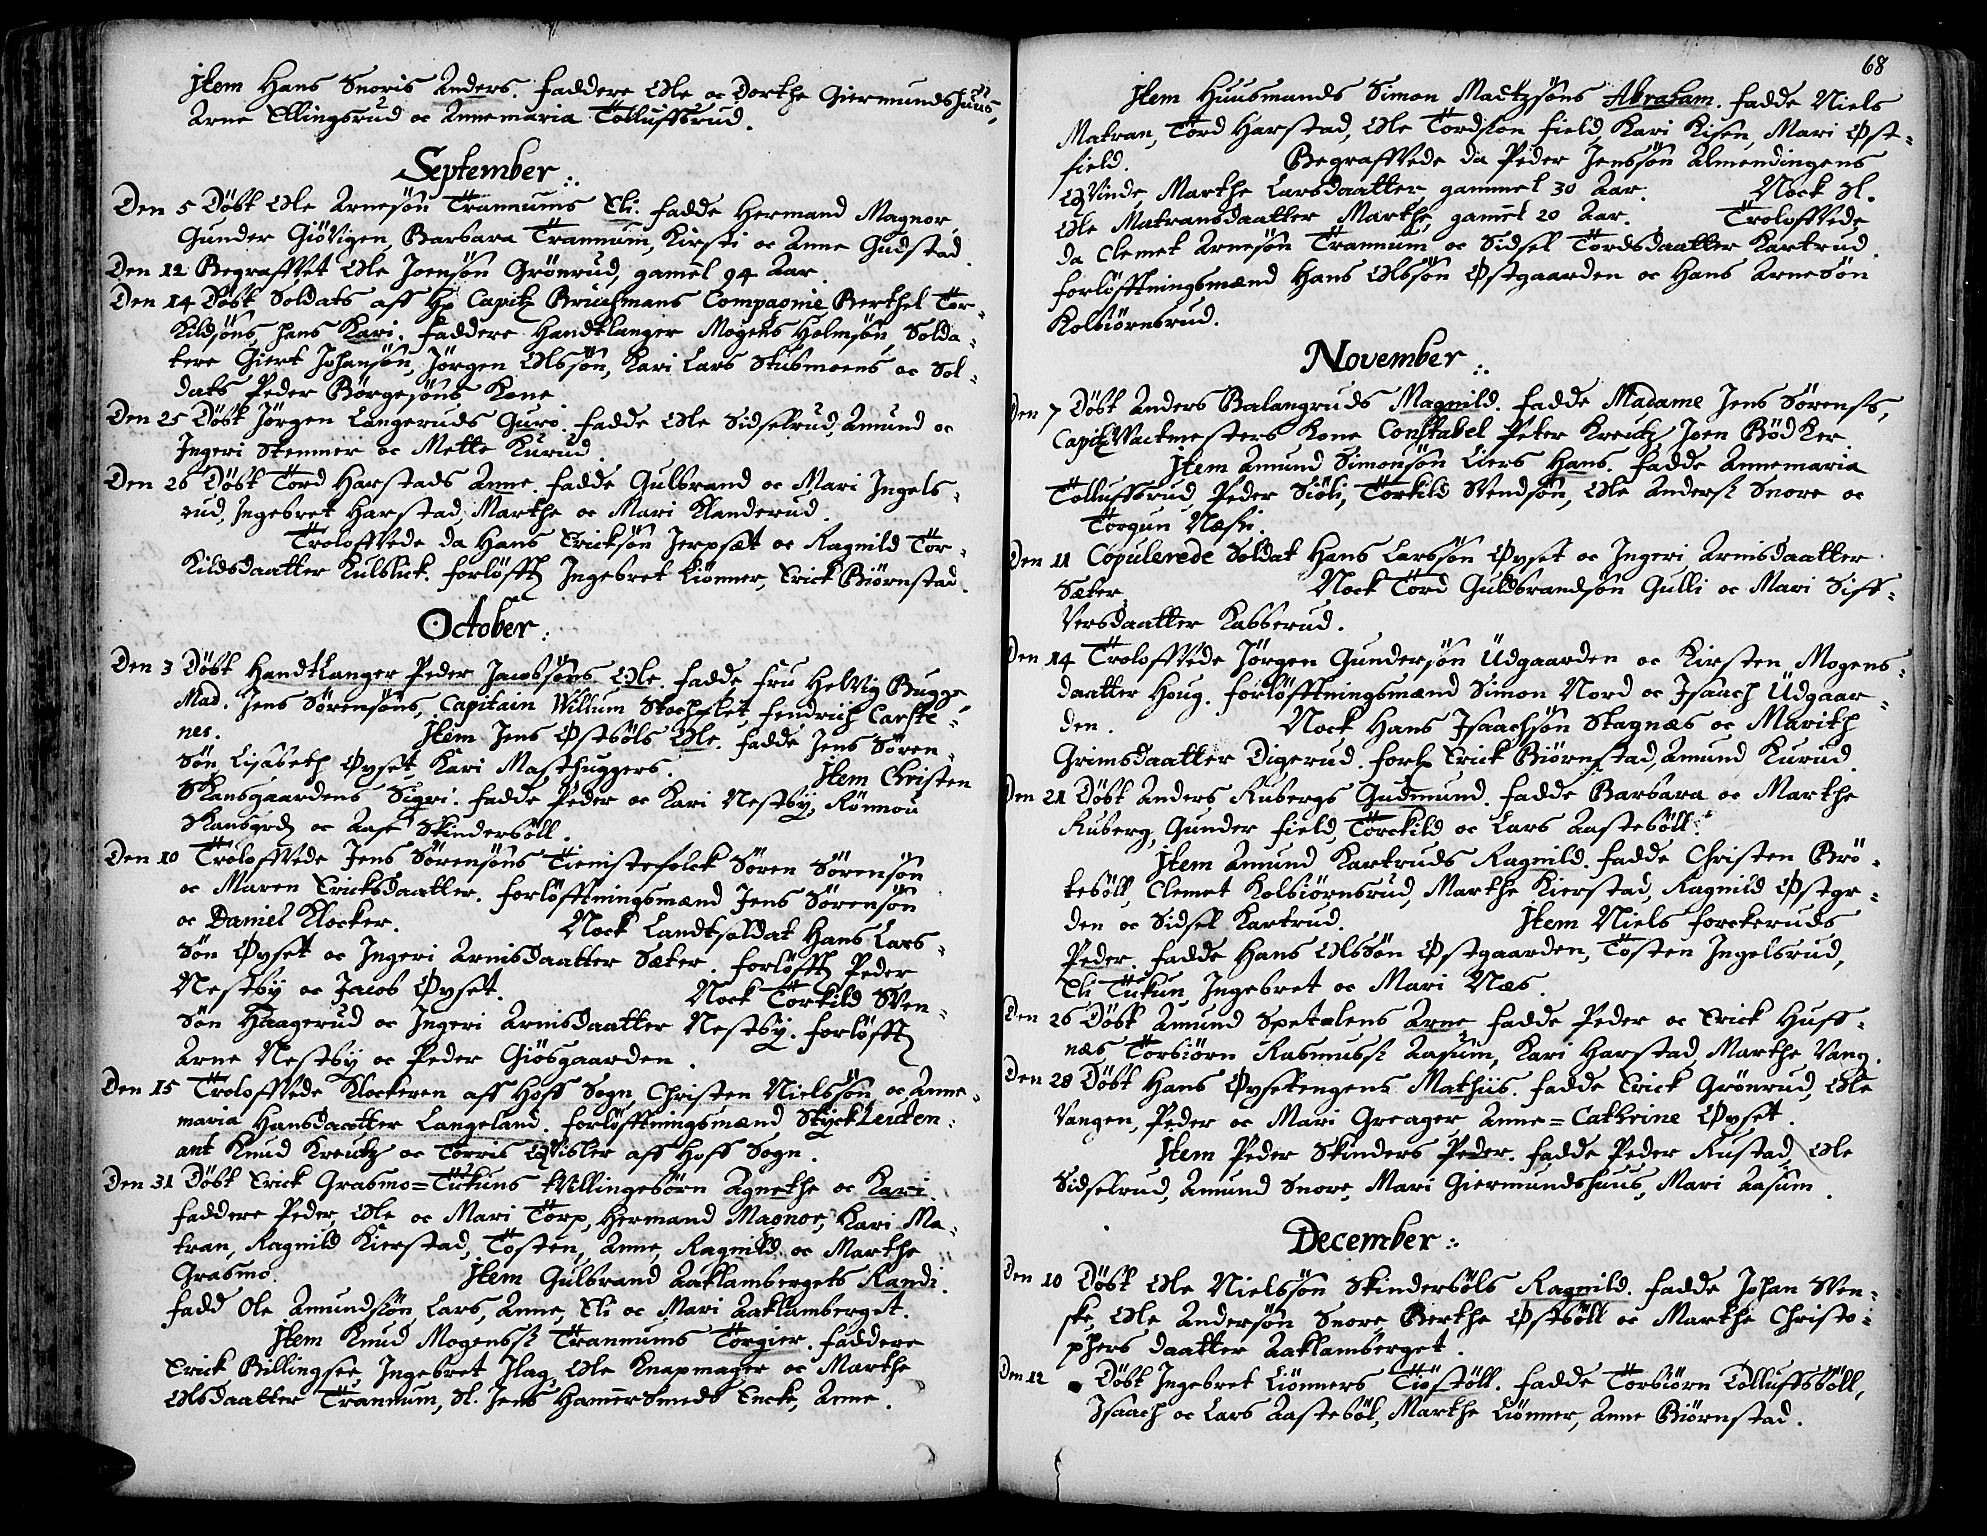 Item Hans Snoris Anders. Faddere Ole oc Dorthe Giermundshuus,
Arne Ellingsrud oc Annemaria Tolluffsrud.
September
Den 5 Døbt Ole Arnesøn Trannums Eli. Fadde Hermand Magnor,
Gunder Giøvigen, Barbara Trannum, Kirsti oc Anne Gudstad.
Den 12 Begraffvet Ole Joensøn Grønrud, gamel 94 Aar.
Den 14 Døbt Soldats aff Hr Capit Compagnie Berthel Tor-
kildsøns, hans Kari. Faddere Handtlanger Mogens Holmsøn, Solda-
tere Giert Johansøn, Jørgen Olssøn, Kari Lars Stubmoens oc Sol-
dats Peder Børgesøns Kone
Den 25 Døbt Jørgen Langeruds Guro. Fadde Ole Sidselrud, Amund oc
Ingeri Stemner oc Mette Kurud.
Den 26 Døbt Tord Harstads Anne. Fadde Gulbrand oc Mari Ingels-
rud, Ingebret Harstad, Marthe oc Mari Klanderud.
Troloffvede da Hans Ericksøn Jerpset oc Ragnild Tor-
kildsdaatter Kulblick. Forløfft Ingebret Liønner, Erick Biørnstad.
October
Den 3 Døbt Handtlanger Peder Jacobsøns Ole. Fadde Fru Helvig Bugge
Mad. Jens Sørensøns, Capitain Willum Stockflet, Fendrich Carste-
nes. Item Jens Østbøls Ole. Fadde Jens Søren-
søn Lisabeth Øyset, Kari Masthuggers. Item Christen
Skansgaardens Sigri. Fadde Peder oc Kari Nestby, Rønnou
Skansgrd oc Aase Skinderbøll.
Den 10 Troloffvede Jens Sørensøns Tienistefolck Søren Sørensøn
oc Maren Ericksdaatter. Forløfftningsmænd Jens Sørensøn
oc Daniel Klocker. Nock Landtsoldat Hans Lars-
søn Øyset oc Ingeri Arnisdaatter Sæter. Forløfft Peder
Nestby oc Jacob Øyset. Nock Torkild Sven-
søn Haagerud oc Ingeri Arnisdaatter Nestby. Forløfft
Arne Nestby oc Peder Giøsgaarden.
Den 15 Troloffvede Klockeren aff Hoff Sogn, Christen Nielssøn, oc Anne-
maria Hansdaatter Langeland. Forløfftningsmænd StyckLeuten-
ant Knud Kreutz oc Torris Qvisler aff Hoff Sogn.
Den 31 Døbt Erick Grasmo=Tukuns tvllingebørn Agnethe oc Kari.
Faddere Peder, Ole oc Mari Torp, Hermand Magnor, Kari Ma-
tran, Ragnild Kierstad, Tosten, Anne, Ragnild oc Marthe
Grasmo. Item Gulbrand Aaklambergets Randi.
Fadd Ole Amundsøn, Lars, Anne, Eli oc Mari Aaklamberget.
Item Knud Mogenss Trannums Torgier. Faddere
Erick Billingsee, Ingebret Ilag, Ole Knapmager oc Marthe
Olsdaatter Trannum, Sl. Jens Hamersmeds Encke, Anne.
68
Item Huusmands Simon Madtzsøns Abraham. Fadde Niels
Matran, Tord Harstad, Ole Tordsøn Field, Kari Kisen, Mari Øst-
field. Begraffvede da Peder Jenssøn Almendingens
Qvinde, Marthe Larsdaatter gammel 30 Aar. Nock Sl.
Ole Matransdaatter Marthe, gamel 20 Aar. Troloffvede
da Clemet Arnesøn Trannum oc Sidsel Tordsdaatter Kartrud.
Forløfftningsmænd Hans Olssøn Østgaarden oc Hans Arnesøn
Kolbiørnsrud.
November
Den 7 Døbt Anders Balangruds Magnild. Fadde Madame Jens Sørenss,
Capit Wactmesters Kone Constabel Peter Kreutz, Joen Bødker.
Item Amund Simonsøn Liers Hans. Fadde Annemaria
Tolluffsrud Peder Siøli, Torkild Svendsøn, Ole Anderss Snore oc
Torgun Næsti.
Den 11 Copulerede Soldat Hans Larssøn Øyset oc Ingeri Arnisdaatter
Sæter. Nock Tord Guldbrandsøn Gulli oc Mari Siff-
versdaatter Kabberud.
Den 14 Troloffvede Jørgen Gundersøn Udgaarden oc Kirsten Mogens-
daatter Houg. Forløfftningsmænd Simon Nord oc Isaach Udgaar-
den. Nock Hans Isaachsøn Skagnæs oc Marith
Grimsdaatter Digerud. Forl Erick Biørnstad, Amund Kurud.
Den 21 Døbt Anders Rubergs Gudmund. Fadde Barbara oc Marthe
Ruberg, Gunder Field, Torckild oc Lars Aastebøll.
Item Amund Kartruds Ragnild. Fadde Christen Brø-
tebøll, Clemet Kolbiørnsrud, Marthe Kierstad, Ragnild Østgr-
den oc Sidsel Kartrud. Item Niels Forckeruds
Peder. Fadde Hans Olssøn Østgaarden, Tosten Ingelsrud,
Eli Tukun Ingebret oc Mari Næs.
Den 26 Døbt Amund Spetalens Arne, Fadde Peder oc Erick Huff-
næs, Torbiørn Rasmuss Aasum, Kari Harstad, Marthe Vang.
Den 28 Døbt Hans Øysetengens Mathiis. Fadde Erick Grønrud, Ole
Vangen, Peder oc Mari Greager, Anne=Cathrine Øyset.
Item Peder Skinders Peder. Fadde Peder Rustad, Ole
Sidselrud, Amund Snore, Mari Giermundshuus, Mari Aasum.
December
Den 10 Døbt Ole Nielssøn Skinderbøls Ragnild. Fadde Johan Sven-
ske, Ole Andersøn Snore, Berthe Østbøll oc Marthe Christo-
phers daatter Aaklamberget.
Den 12 Døbt Ingebret Liønners Tiøstøll. Fadde Torbiørn Tolluffsbøll,
Isaach oc Lars Aastebøl, Marthe Liønner, Anne Biørnstad.